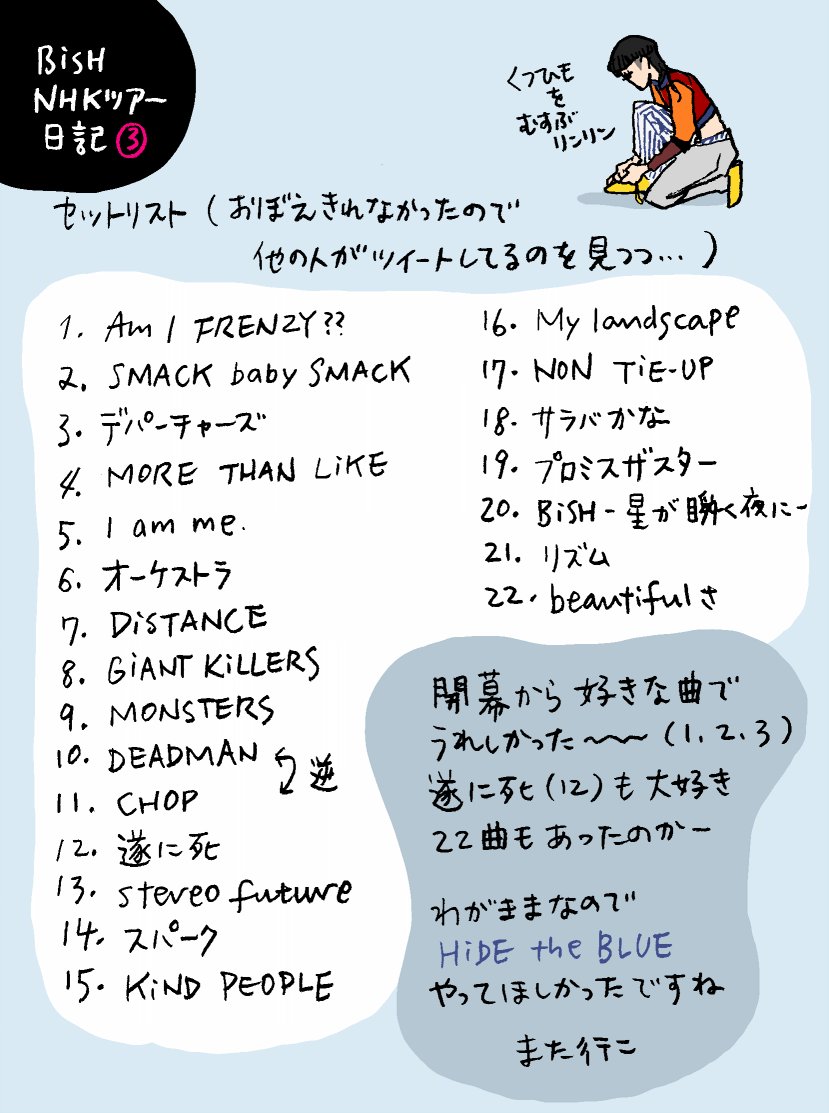 BiSH
NHKツアー
日記③
くつひも
を
むすぶ
リンリン
セットリスト(おぼえきれなかったので
他の人がツイートしてるのを見つつ…)
1. Am I FRENZY??
2. SMACK baby SMACK
3. デパーチャーズ
4. MORE THAN LiKE
5. I am me.
6. オーケストラ
7. DiSTANCE
8. GiANT KiLLERS
9. MONSTERS
10. DEADMAN
逆
11. CHOP
12. 遂に死
13. stereo future
14. スパーク
15. KiND PEOPLE
16. My landscape
17. NON TiE-UP
18. サラバかな
19. プロミスザスター
20. BiSH-星が瞬く夜に-
21. リズム
22. beautifulさ
開幕から好きな曲で
うれしかった〜〜(1.2.3)
遂に死(12)も大好き
22曲もあったのかー
わがままなので
HiDE the BLUE
やってほしかったですね
また行こ